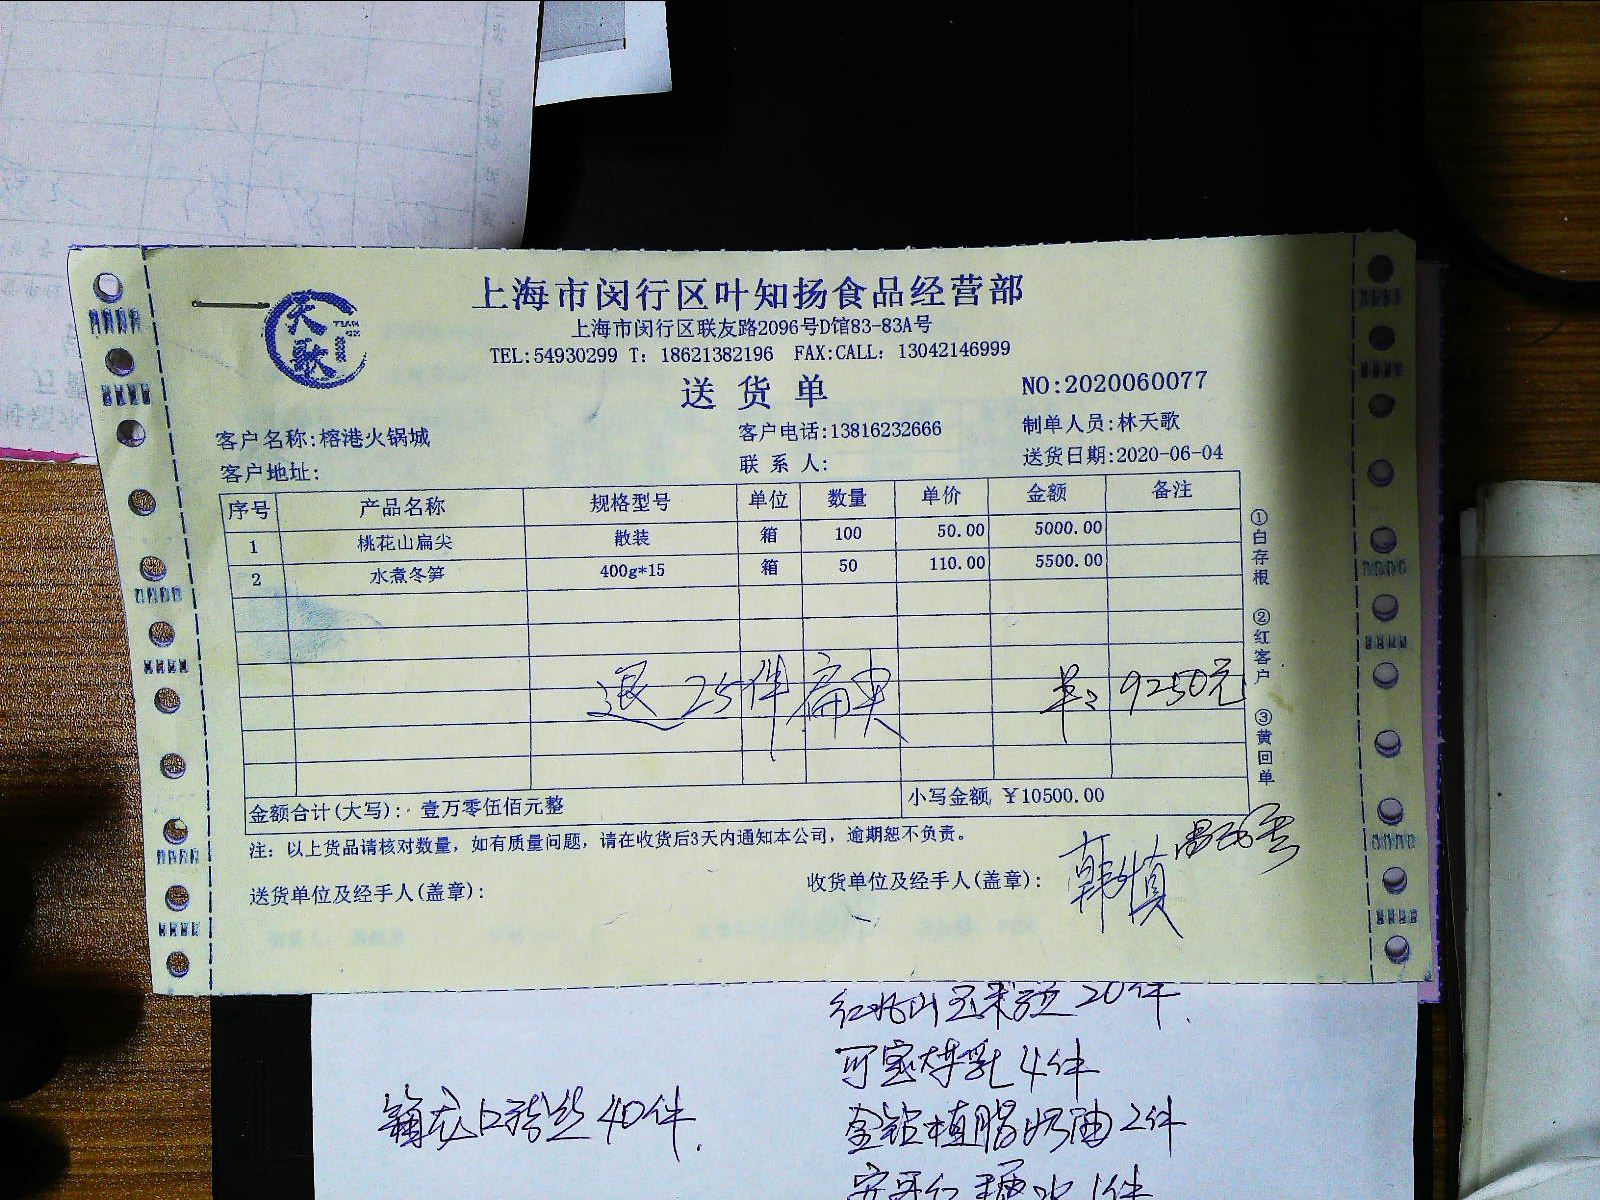 天歌
TIAN
GE
上海市闵行区叶知扬食品经营部
上海市闵行区联友路2096号D馆83-83A号
TEL:54930299 T: 18621382196 FAX:CALL: 13042146999
送货单
NO:2020060077
客户名称:榕港火锅城
客户电话:13816232666
制单人员:林天歌
客户地址:
联系人:
送货日期:2020-06-04
序号 产品名称 规格型号 单位 数量 单价 金额 备注
1 桃花山扁尖 散装 箱 100 50.00 5000.00
2 水煮冬笋 400g*15 箱 50 110.00 5500.00
退25件扁尖 9250元
金额合计(大写): 壹万零伍佰元整 小写金额 ¥10500.00
注: 以上货品请核对数量, 如有质量问题, 请在收货后3天内通知本公司, 逾期恕不负责。
送货单位及经手人(盖章):
收货单位及经手人(盖章): 韩慎
①白存根 ②红客户 ③黄回单
玉米粒20件
龙口粉丝40件
炼乳4件
金钻植脂奶油2件
1件